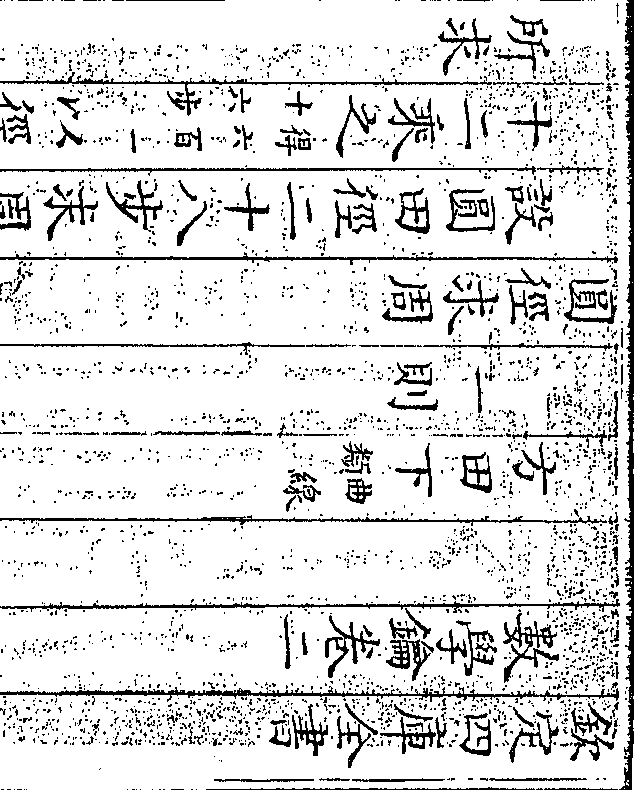 欽定四庫全書
數學鑰卷二
方田下曲線類
一則
圓徑求周
設圓田徑二十八步求周
十二乘之得六百一十六步以徑
所求